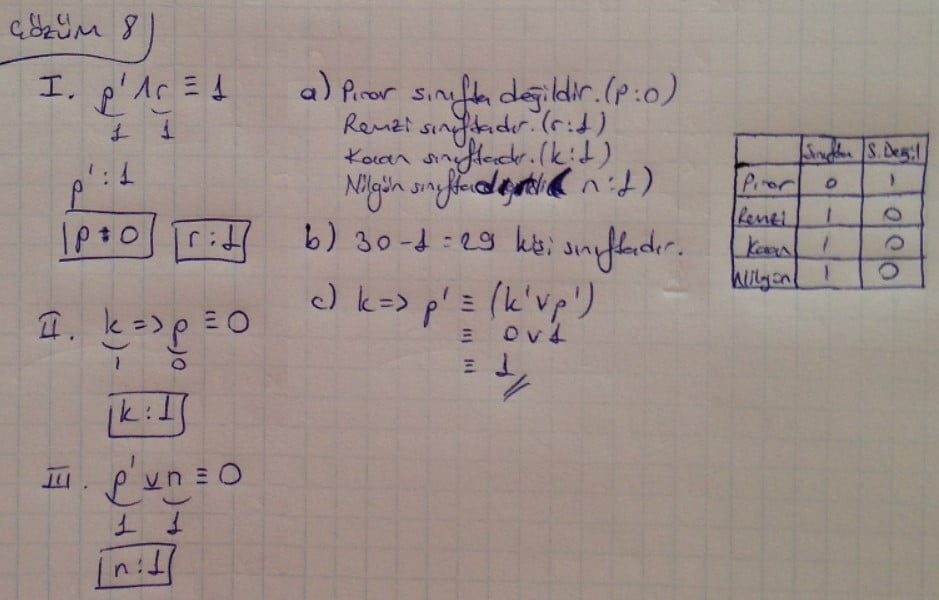 Çözüm 8)
I. p' ∧ r ≡ 1
1 1
p' : 1
p : 0 r : 1
II. k => p ≡ 0
1 0
k : 1
III. p' ⊻ n ≡ 0
1 1
n : 1
a) Pınar sınıfta değildir. (p : 0)
Remzi sınıftadır. (r : 1)
Kaan sınıftadır. (k : 1)
Nilgün sınıftadır ( n : 1)
b) 30 - 1 = 29 kişi sınıftadır.
c) k => p' ≡ (k' ∨ p')
≡ 0 ∨ 1
≡ 1
Sınıfta S. Değil
Pınar 0 1
Remzi 1 0
Kaan 1 0
Nilgün 1 0